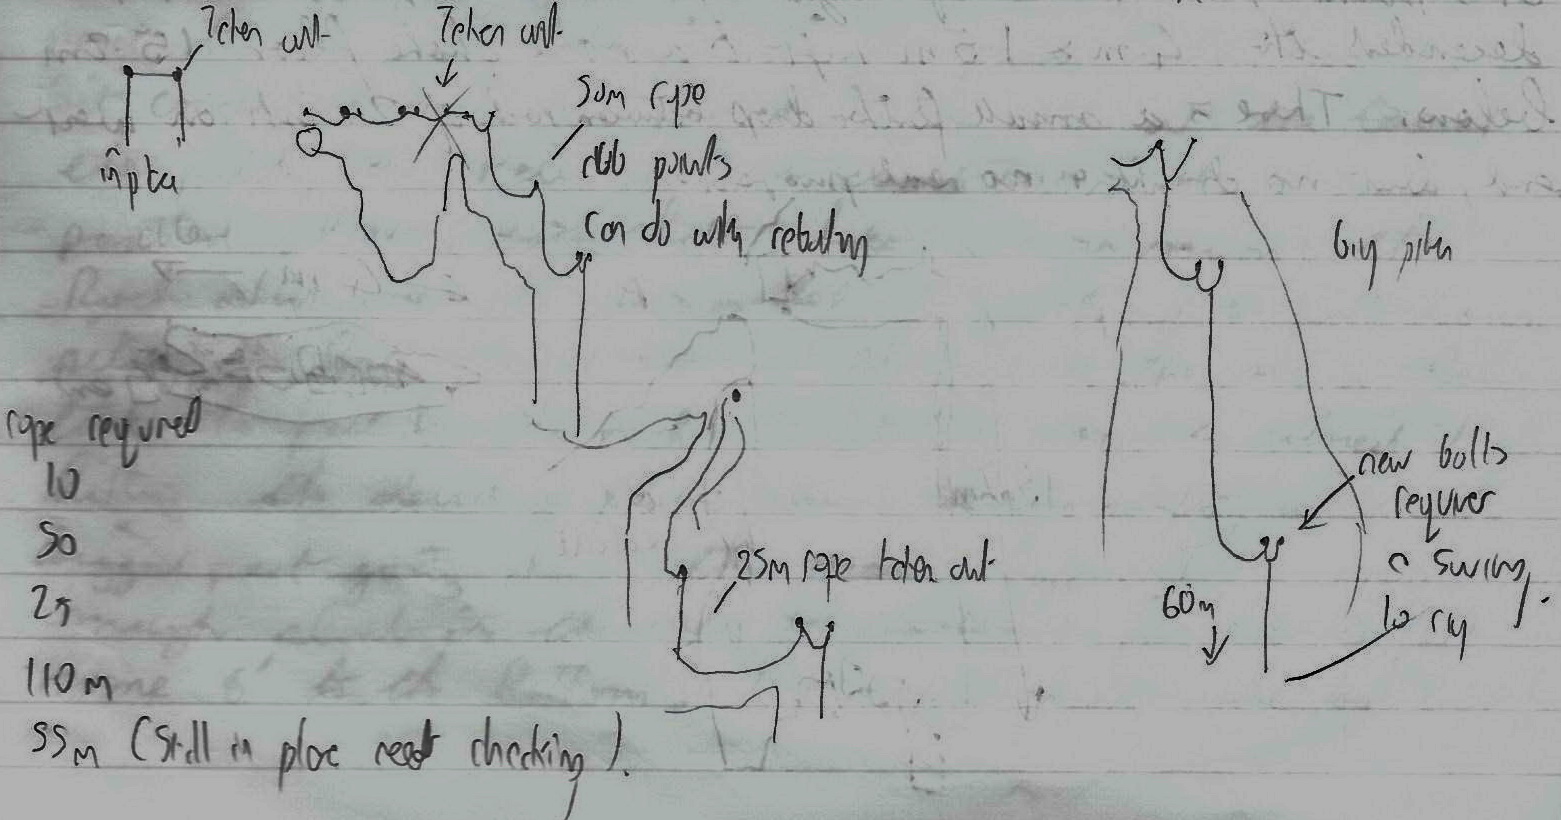 Taken out
Taken out
50m rope
in place
odd points
Can do with rebelay
big pitch
rope required
10
50
25
110m
55m (Still in place needs checking).
25m rope taken out
new bolts
requires
a swing
to rig
60m